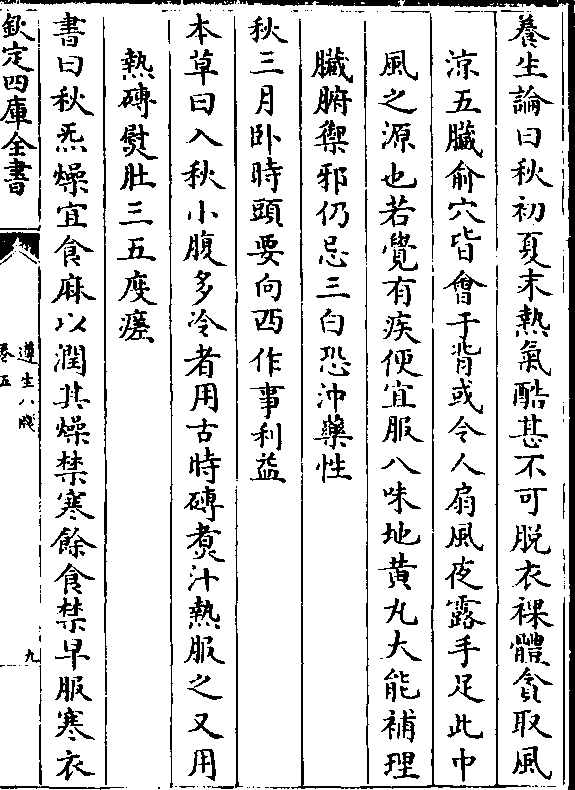 養生論曰秋初夏末熱氣酷甚不可脫衣裸體貪取風
涼五臟俞穴皆會于背或令人扇風夜露手足此中
風之源也若覺有疾便宜服八味地黄丸大能補理
臟腑禦邪仍忌三白恐沖藥性
秋三月卧時頭要向西作事利益
本草曰入秋小腹多冷者用古時磚煑汁熱服之又用
熱磚熨肚三五度瘥
書曰秋炁燥宜食麻以潤其燥禁寒飲食禁早服寒衣
欽定四庫全書
遵生八牋
卷五
九